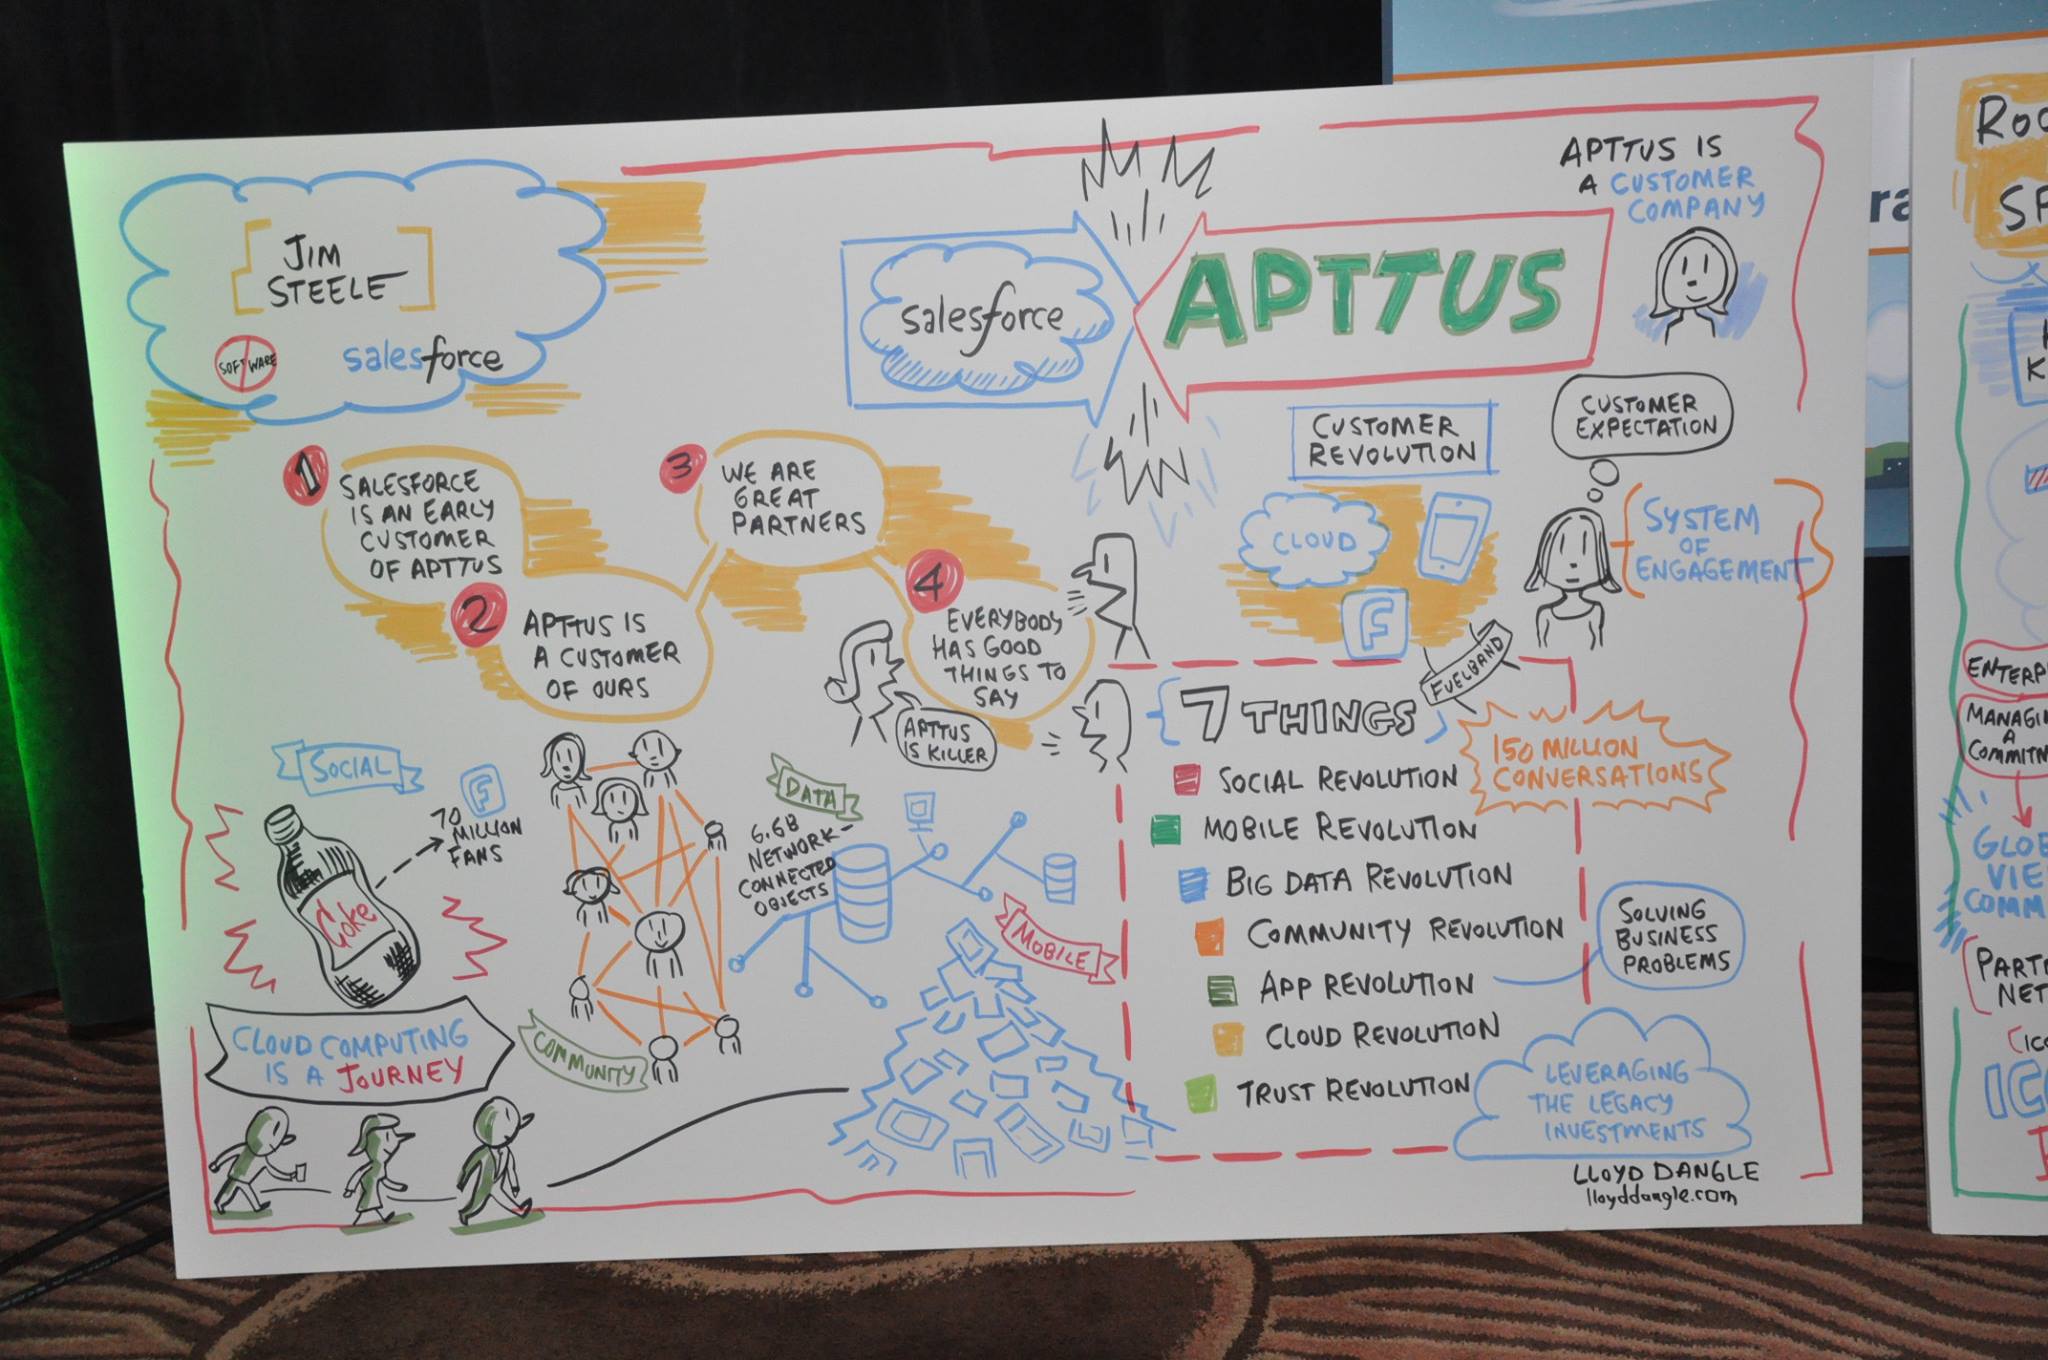 JIM
STEELE
SOFTWARE
salesforce
salesforce
APTTUS
APTTUS IS
A CUSTOMER
COMPANY
1
SALESFORCE
IS AN EARLY
CUSTOMER
OF APTTUS
2
APTTUS IS
A CUSTOMER
OF OURS
3
WE ARE
GREAT
PARTNERS
4
EVERYBODY
HAS GOOD
THINGS TO
SAY
APTTUS
IS KILLER
CUSTOMER
REVOLUTION
CLOUD
F
CUSTOMER
EXPECTATION
SYSTEM
OF
ENGAGEMENT
FUELBAND
7 THINGS
150 MILLION
CONVERSATIONS
SOCIAL REVOLUTION
MOBILE REVOLUTION
BIG DATA REVOLUTION
COMMUNITY REVOLUTION
APP REVOLUTION
CLOUD REVOLUTION
TRUST REVOLUTION
SOLVING
BUSINESS
PROBLEMS
LEVERAGING
THE LEGACY
INVESTMENTS
LLOYD DANGLE
lloyddangle.com
SOCIAL
F
70
MILLION
FANS
Coke
CLOUD COMPUTING
IS A JOURNEY
COMMUNITY
DATA
6.6B
NETWORK-
CONNECTED
OBJECTS
MOBILE
ra
ROO
SP
K
ENTERP
MANAGIN
A
COMMITM
GLOB
VIE
COMM
PARTN
NET
ICO